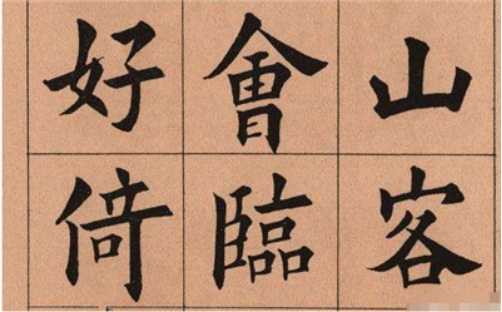 山客
會臨
好倚